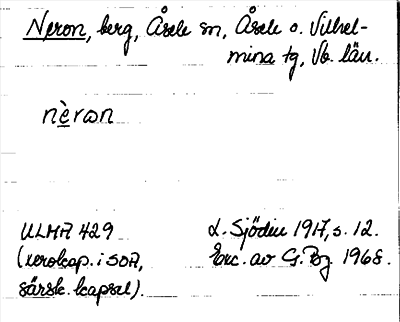 Neron, berg, Åsele sn, Åsele o. Vilhel-
mina tg, Vb. län.
nèrωn
ULMA 429
(xerokop. i SOA,
särsk. kapsel).
L. Sjödin 1917, s. 12.
Exc. av G. Bg 1968.